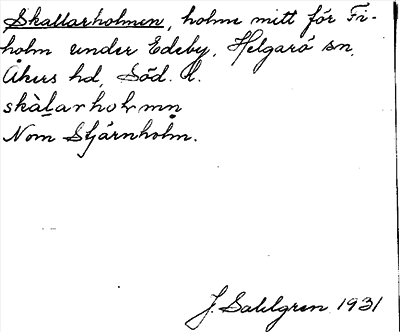 Skallarholmen, holme mitt för Fi-
holm under Edeby, Helgarö sn,
Åkers hd, Söd. l.
skàḷarholmn̥
Nom Stjärnholm.
J. Sahlgren 1931